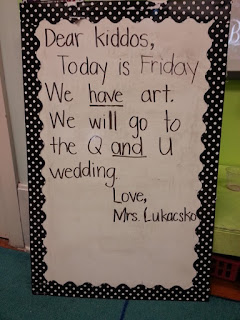 Dear kiddos,
Today is Friday
We have art.
We will go to
the Q and U
wedding.
Love,
Mrs. Lukacsko